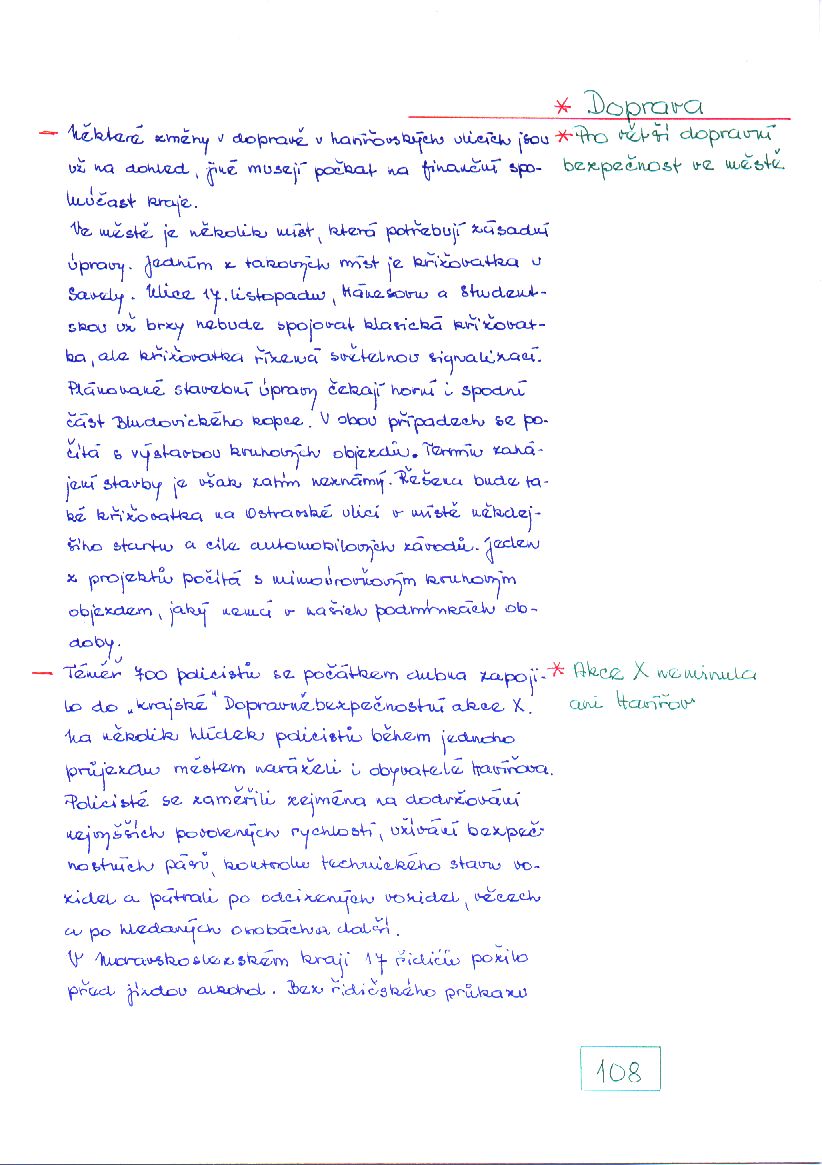 * Doprava
— Některé změny v dopravě v havířovských ulicích jsou
* Pro větší dopravní
už na dohled, jiné musejí počkat na finanční spo-
bezpečnost ve městě
luúčast kraje.
Ve městě je několik míst, která potřebují zásadní
úpravy. Jedním z takových míst je křižovatka u
Savely. Ulice 17. listopadu, Mánesovu a Student-
skou už brzy nebude spojovat klasická křižovat-
ka, ale křižovatka řízená světelnou signalizací.
Plánované stavební úpravy čekají horní i spodní
část Bludovického kopce. V obou případech se po-
čítá s výstavbou kruhových objezdů. Termín zahá-
jení stavby je však zatím neznámý. Řešena bude ta-
ké křižovatka na Ostravské ulici v místě někdej-
šího startu a cíle automobilových závodů. Jeden
z projektů počítá s mimoúrovňovým kruhovým
objezdem, jaký nemá v našich podmínkách ob-
doby.
— Téměř 700 policistů se počátkem dubna zapoji-
* Akce X neminula
lo do „krajské" Dopravněbezpečnostní akce X.
ani Havířov
Na několik hlídek policistů během jednoho
průjezdu městem naráželi i obyvatelé Havířova.
Policisté se zaměřili zejména na dodržování
nejvyšších povolených rychlostí, užívání bezpeč-
nostních pásů, kontrolu technického stavu vo-
zidel a pátrali po odcizených vozidel, věcech
a po hledaných osobách a další.
V Moravskoslezském kraji 17 řidičů požilo
před jízdou alkohol. Bez řidičského průkazu
108